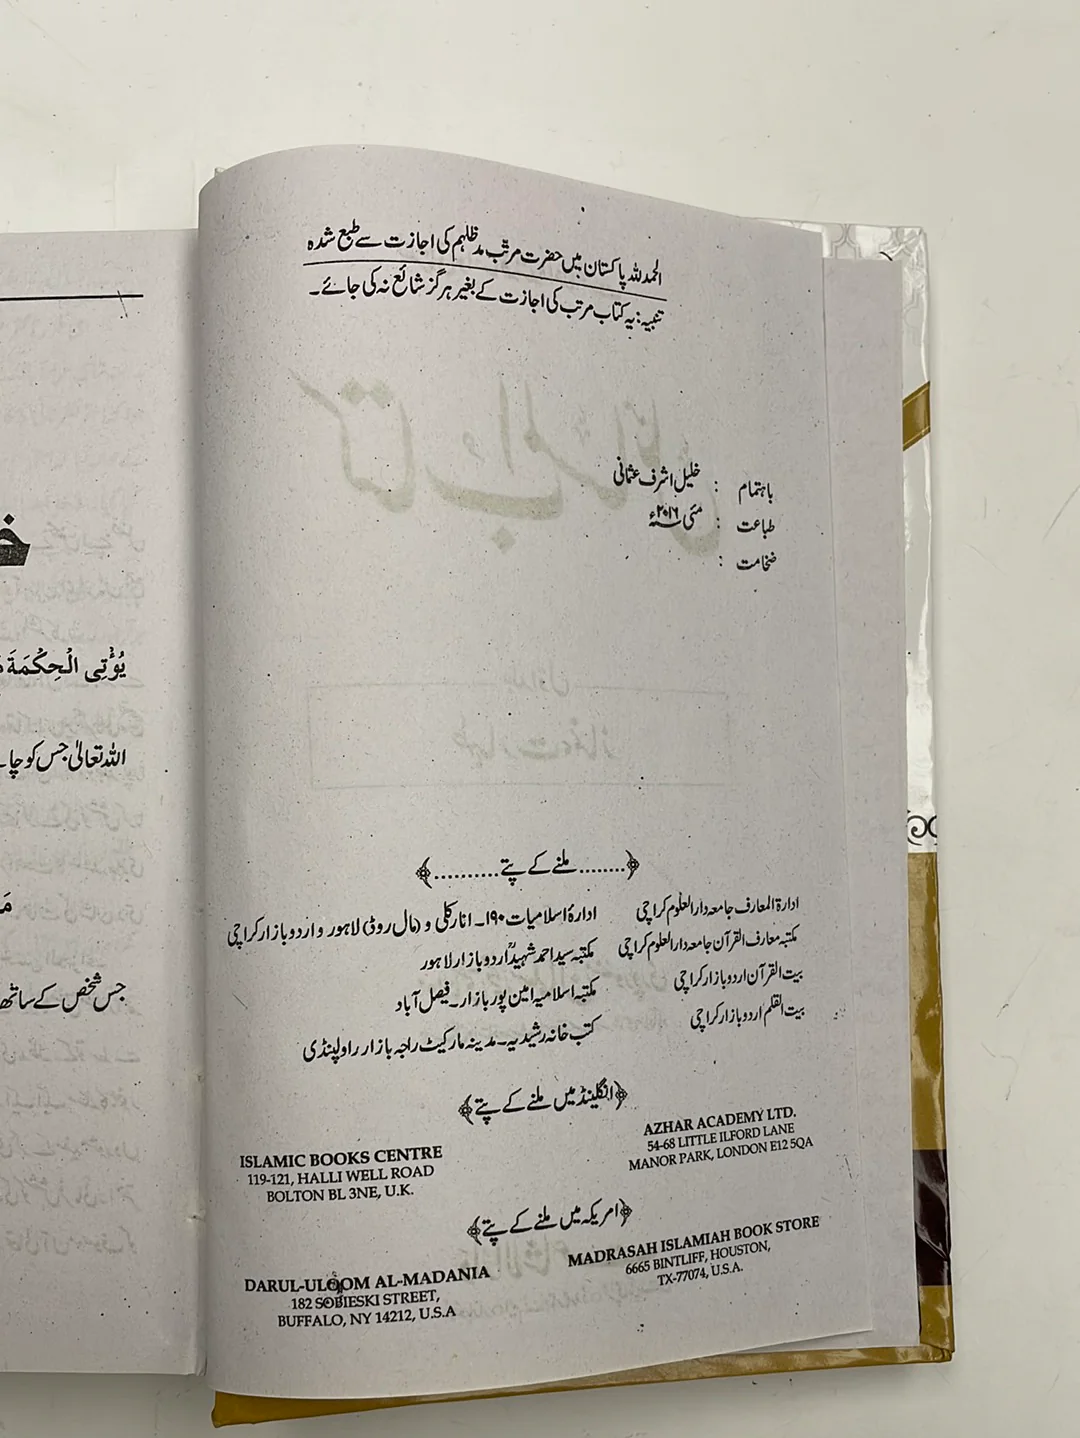 الحمدللہ پاکستان میں حضرت مرتب مدظلہم کی اجازت سے طبع شدہ
تنبیہ: یہ کتاب مرتب کی اجازت کے بغیر ہرگز شائع نہ کی جائے۔
باہتمام : خلیل اشرف عثمانی
طباعت : مئی ۲۰۱۶ء
ضخامت :
﴿........ملنے کے پتے..........﴾
ادارۃ المعارف جامعہ دارالعلوم کراچی
مکتبہ معارف القرآن جامعہ دارالعلوم کراچی
بیت القرآن اردو بازار کراچی
بیت القلم اردو بازار کراچی
ادارۂ اسلامیات ۱۹۰۔ انارکلی و (مال روڈ) لاہور و اردو بازار کراچی
مکتبہ سید احمد شہیدؒ اردو بازار لاہور
مکتبہ اسلامیہ امین پور بازار۔ فیصل آباد
کتب خانہ رشیدیہ۔ مدینہ مارکیٹ راجہ بازار راولپنڈی
﴿انگلینڈ میں ملنے کے پتے﴾
ISLAMIC BOOKS CENTRE
119-121, HALLI WELL ROAD
BOLTON BL 3NE, U.K.
AZHAR ACADEMY LTD.
54-68 LITTLE ILFORD LANE
MANOR PARK, LONDON E12 5QA
﴿امریکہ میں ملنے کے پتے﴾
DARUL-ULOOM AL-MADANIA
182 SOBIESKI STREET,
BUFFALO, NY 14212, U.S.A
MADRASAH ISLAMIAH BOOK STORE
6665 BINTLIFF, HOUSTON,
TX-77074, U.S.A.
یُؤْتِی الْحِکْمَةَ
اللہ تعالیٰ جس کو
جس شخص کے ساتھ